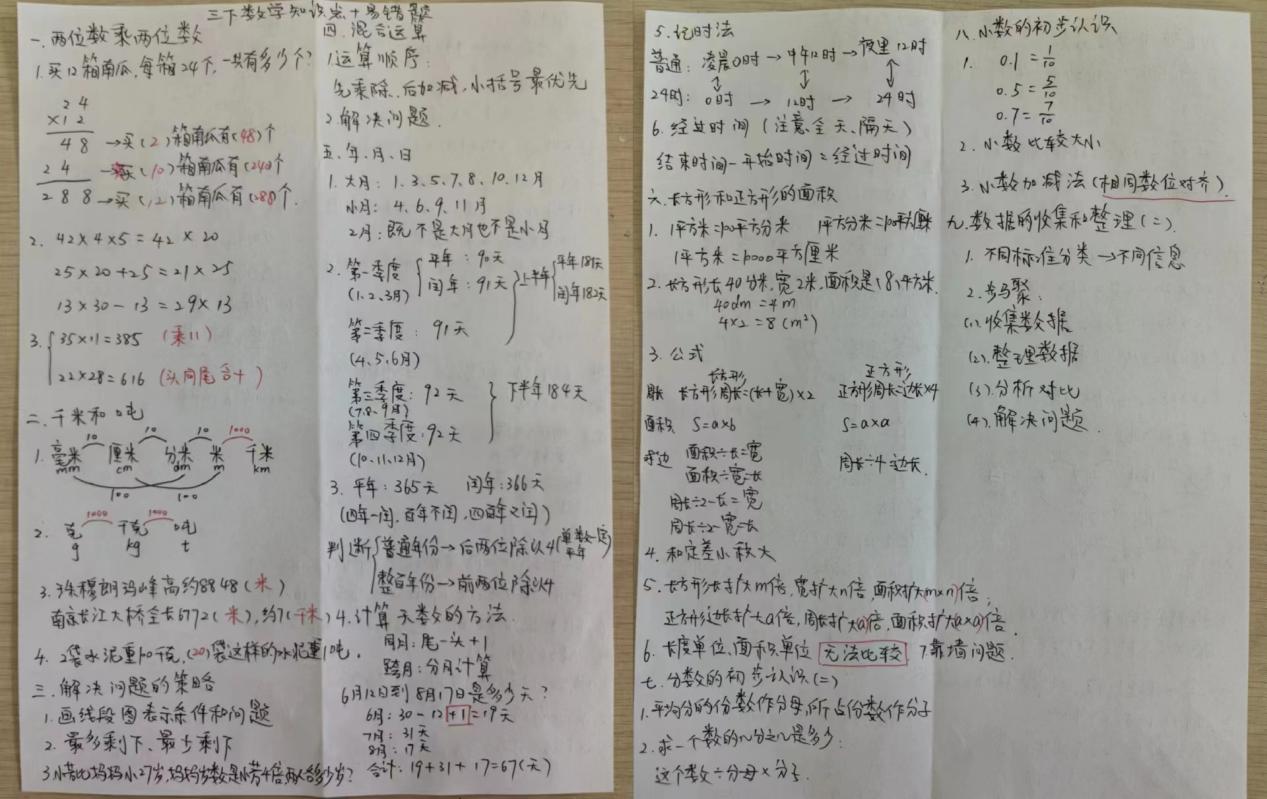 三下数学知识点+易错题
一、两位数乘两位数
1.买12箱南瓜,每箱24个,一共有多少个?
24
×12
48 →买(2)箱南瓜有(48)个
24 →买(10)箱南瓜有(240)个
288 →买(12)箱南瓜有(288)个.
2. 42×4×5=42×20
25×20+25=21×25
13×30-13=29×13
3. 35×11=385 (乘11)
22×28=616 (头同尾合十)
二、千米和吨
10 10 10 1000
1. 毫米 厘米 分米 米 千米
mm cm dm m km
100 100
1000 1000
2. 克 千克 吨
g kg t
3.珠穆朗玛峰高约8848(米)
南京长江大桥全长6772(米),约7(千米)
4. 2袋水泥重100千克,(20)袋这样的水泥重1吨.
三、解决问题的策略
1.画线段图表示条件和问题
2. 最多剩下、最少剩下
3.小芳比妈妈小27岁,妈妈岁数是小芳4倍,两人合多少岁?
四、混合运算
1.运算顺序:
先乘除,后加减,小括号最优先
2.解决问题.
五、年、月、日
1.大月: 1、3、5、7、8、10、12月
小月: 4、6、9、11月
2月:既不是大月也不是小月
2. 第一季度 平年:90天
(1、2、3月) 闰年:91天
上半年 平年181天
闰年182天
第二季度: 91天
(4、5、6月)
第三季度: 92天
(7、8、9月)
下半年184天
第四季度: 92天
(10、11、12月)
3. 平年:365天 闰年:366天
(四年一闰,百年不闰,四百年又闰)
判断 普通年份→后两位除以4(单数一定平年)
整百年份→前两位除以4
4.计算天数的方法.
同月:尾-头+1
跨月:分月计算
6月12日到8月17日是多少天?
6月:30-12+1=19天
7月: 31天
8月: 17天
合计: 19+31+17=67(天)
5.记时法
普通: 凌晨0时→中午12时→夜里12时
24时: 0时 → 12时 → 24时
6.经过时间(注意全天、隔天)
结束时间-开始时间=经过时间
六、长方形和正方形的面积
1. 1平方米=100平方分米 1平方分米=100平方厘米
1平方米=10000平方厘米
2.长方形长40分米,宽2米,面积是(8)平方米.
40dm=4m
4×2=8(m²)
3.公式
长方形 正方形
周长 长方形周长=(长+宽)×2 正方形周长=边长×4
面积 S=a×b S=a×a
求边 面积÷长=宽 周长÷4=边长.
面积÷宽=长
周长÷2-长=宽
周长÷2-宽=长
4.和定差小积大
5.长方形长扩大m倍,宽扩大n倍,面积扩大(m×n)倍;
正方形边长扩大a倍,周长扩大(a)倍,面积扩大(a×a)倍.
6.长度单位,面积单位 无法比较 7.靠墙问题.
七、分数的初步认识(二)
1.平均分的份数作分母,所占份数作分子
2.求一个数的几分之几是多少:
这个数÷分母×分子.
八、小数的初步认识
1. 0.1=1/10
0.5=5/10
0.7=7/10
2. 小数比较大小
3.小数加减法(相同数位对齐)
九、数据的收集和整理(二)
1.不同标准分类→不同信息
2.步骤:
(1).收集数据
(2).整理数据
(3).分析对比
(4).解决问题